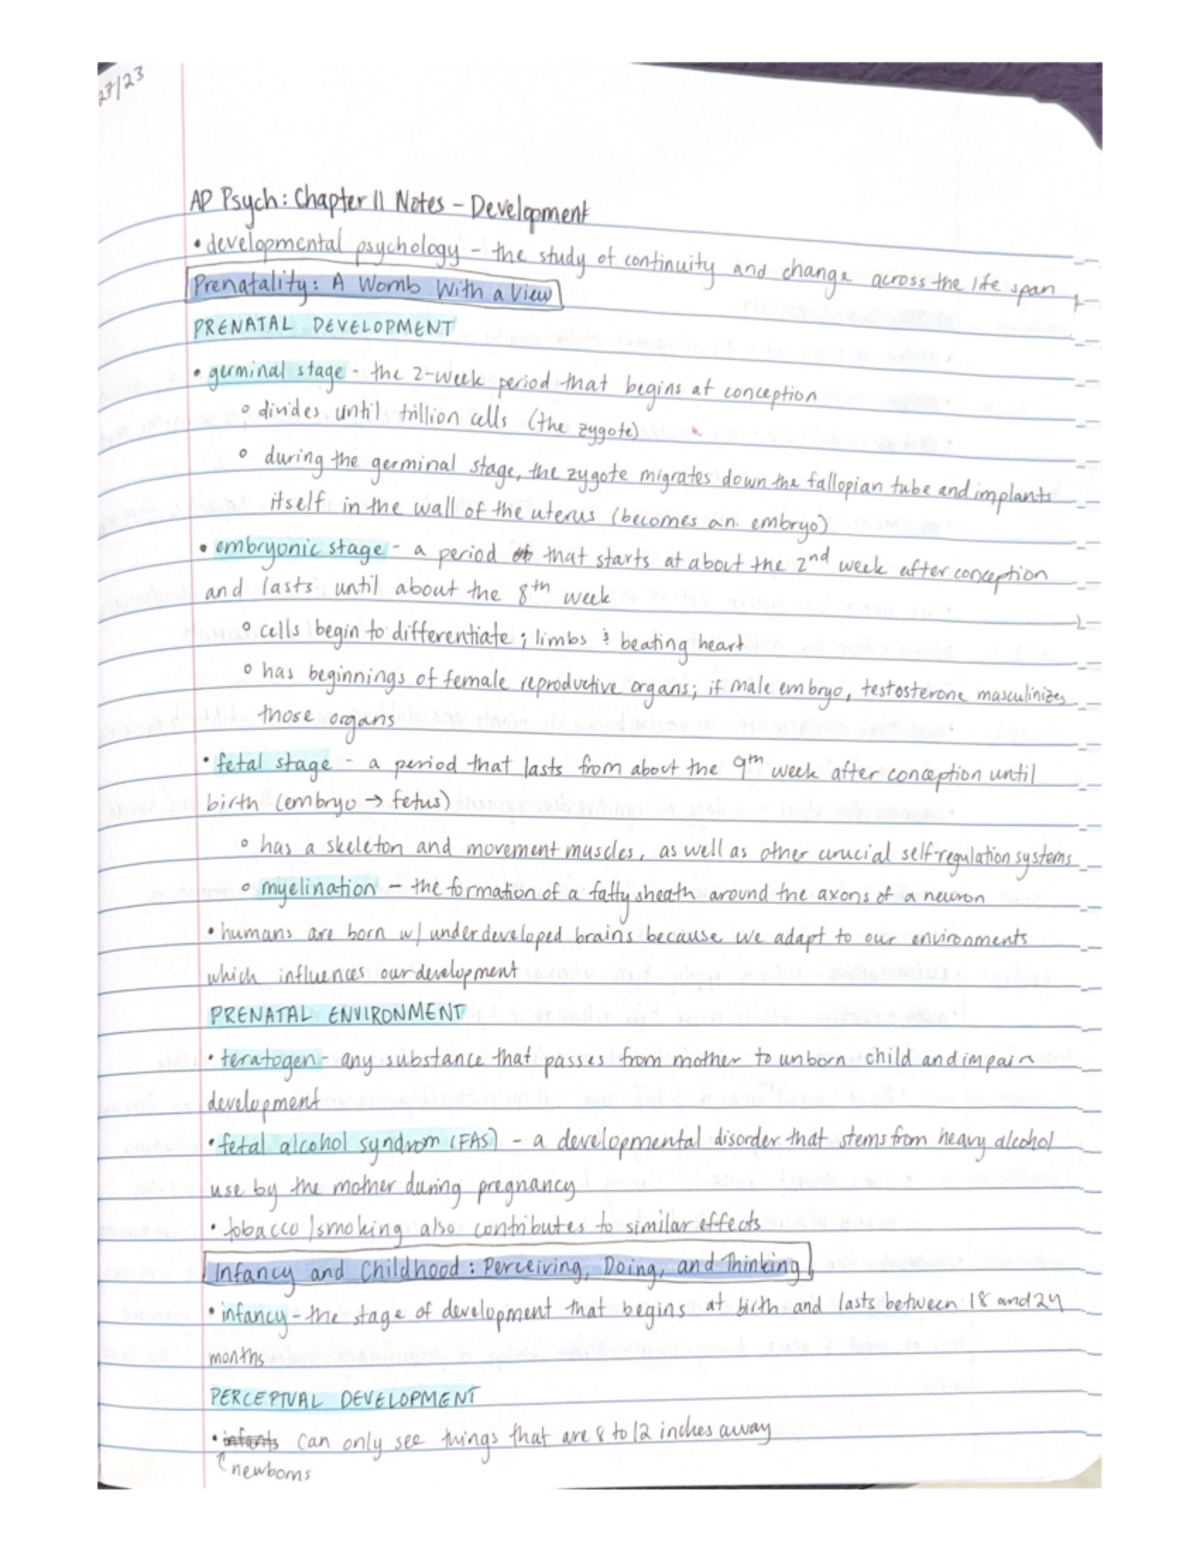 27/23
AP Psych: Chapter 11 Notes - Development
• developmental psychology - the study of continuity and change across the life span
Prenatality: A Womb With a View
PRENATAL DEVELOPMENT
• germinal stage - the 2-week period that begins at conception
° divides until trillion cells (the zygote)
° during the germinal stage, the zygote migrates down the fallopian tube and implants
itself in the wall of the uterus (becomes an embryo)
• embryonic stage - a period that starts at about the 2nd week after conception
and lasts until about the 8th week
° cells begin to differentiate; limbs & beating heart
° has beginnings of female reproductive organs; if male embryo, testosterone masculinizes
those organs
• fetal stage - a period that lasts from about the 9th week after conception until
birth (embryo → fetus)
° has a skeleton and movement muscles, as well as other crucial self-regulation systems
° myelination - the formation of a fatty sheath around the axons of a neuron
• humans are born w/ underdeveloped brains because we adapt to our environments
which influences our development
PRENATAL ENVIRONMENT
• teratogen - any substance that passes from mother to unborn child and impair
development
• fetal alcohol syndrom (FAS) - a developmental disorder that stems from heavy alcohol
use by the mother during pregnancy
• tobacco/smoking also contributes to similar effects
Infancy and Childhood: Perceiving, Doing, and Thinking
• infancy - the stage of development that begins at birth and lasts between 18 and 24
months
PERCEPTUAL DEVELOPMENT
• infants can only see things that are 8 to 12 inches away
newborns